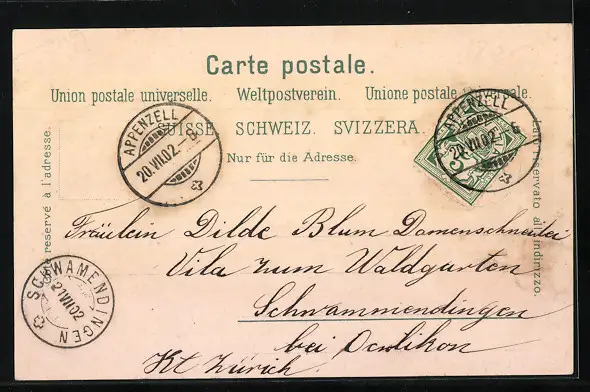 Carte postale.
Union postale universelle. Weltpostverein. Unione postale universale.
SUISSE. SCHWEIZ. SVIZZERA.
Nur für die Adresse.
réservé à l'adresse.
Lato riservato all'indirizzo.
APPENZELL
20.VII.02-8
APPENZELL
20.VII.02-8
5
Fräulein Dilde Blum Damenschneider
Vila zum Waldgarten
Schwammendingen
bei Oerlikon
Kt Zürich.
SCHWAMENDINGEN
21.VII.02